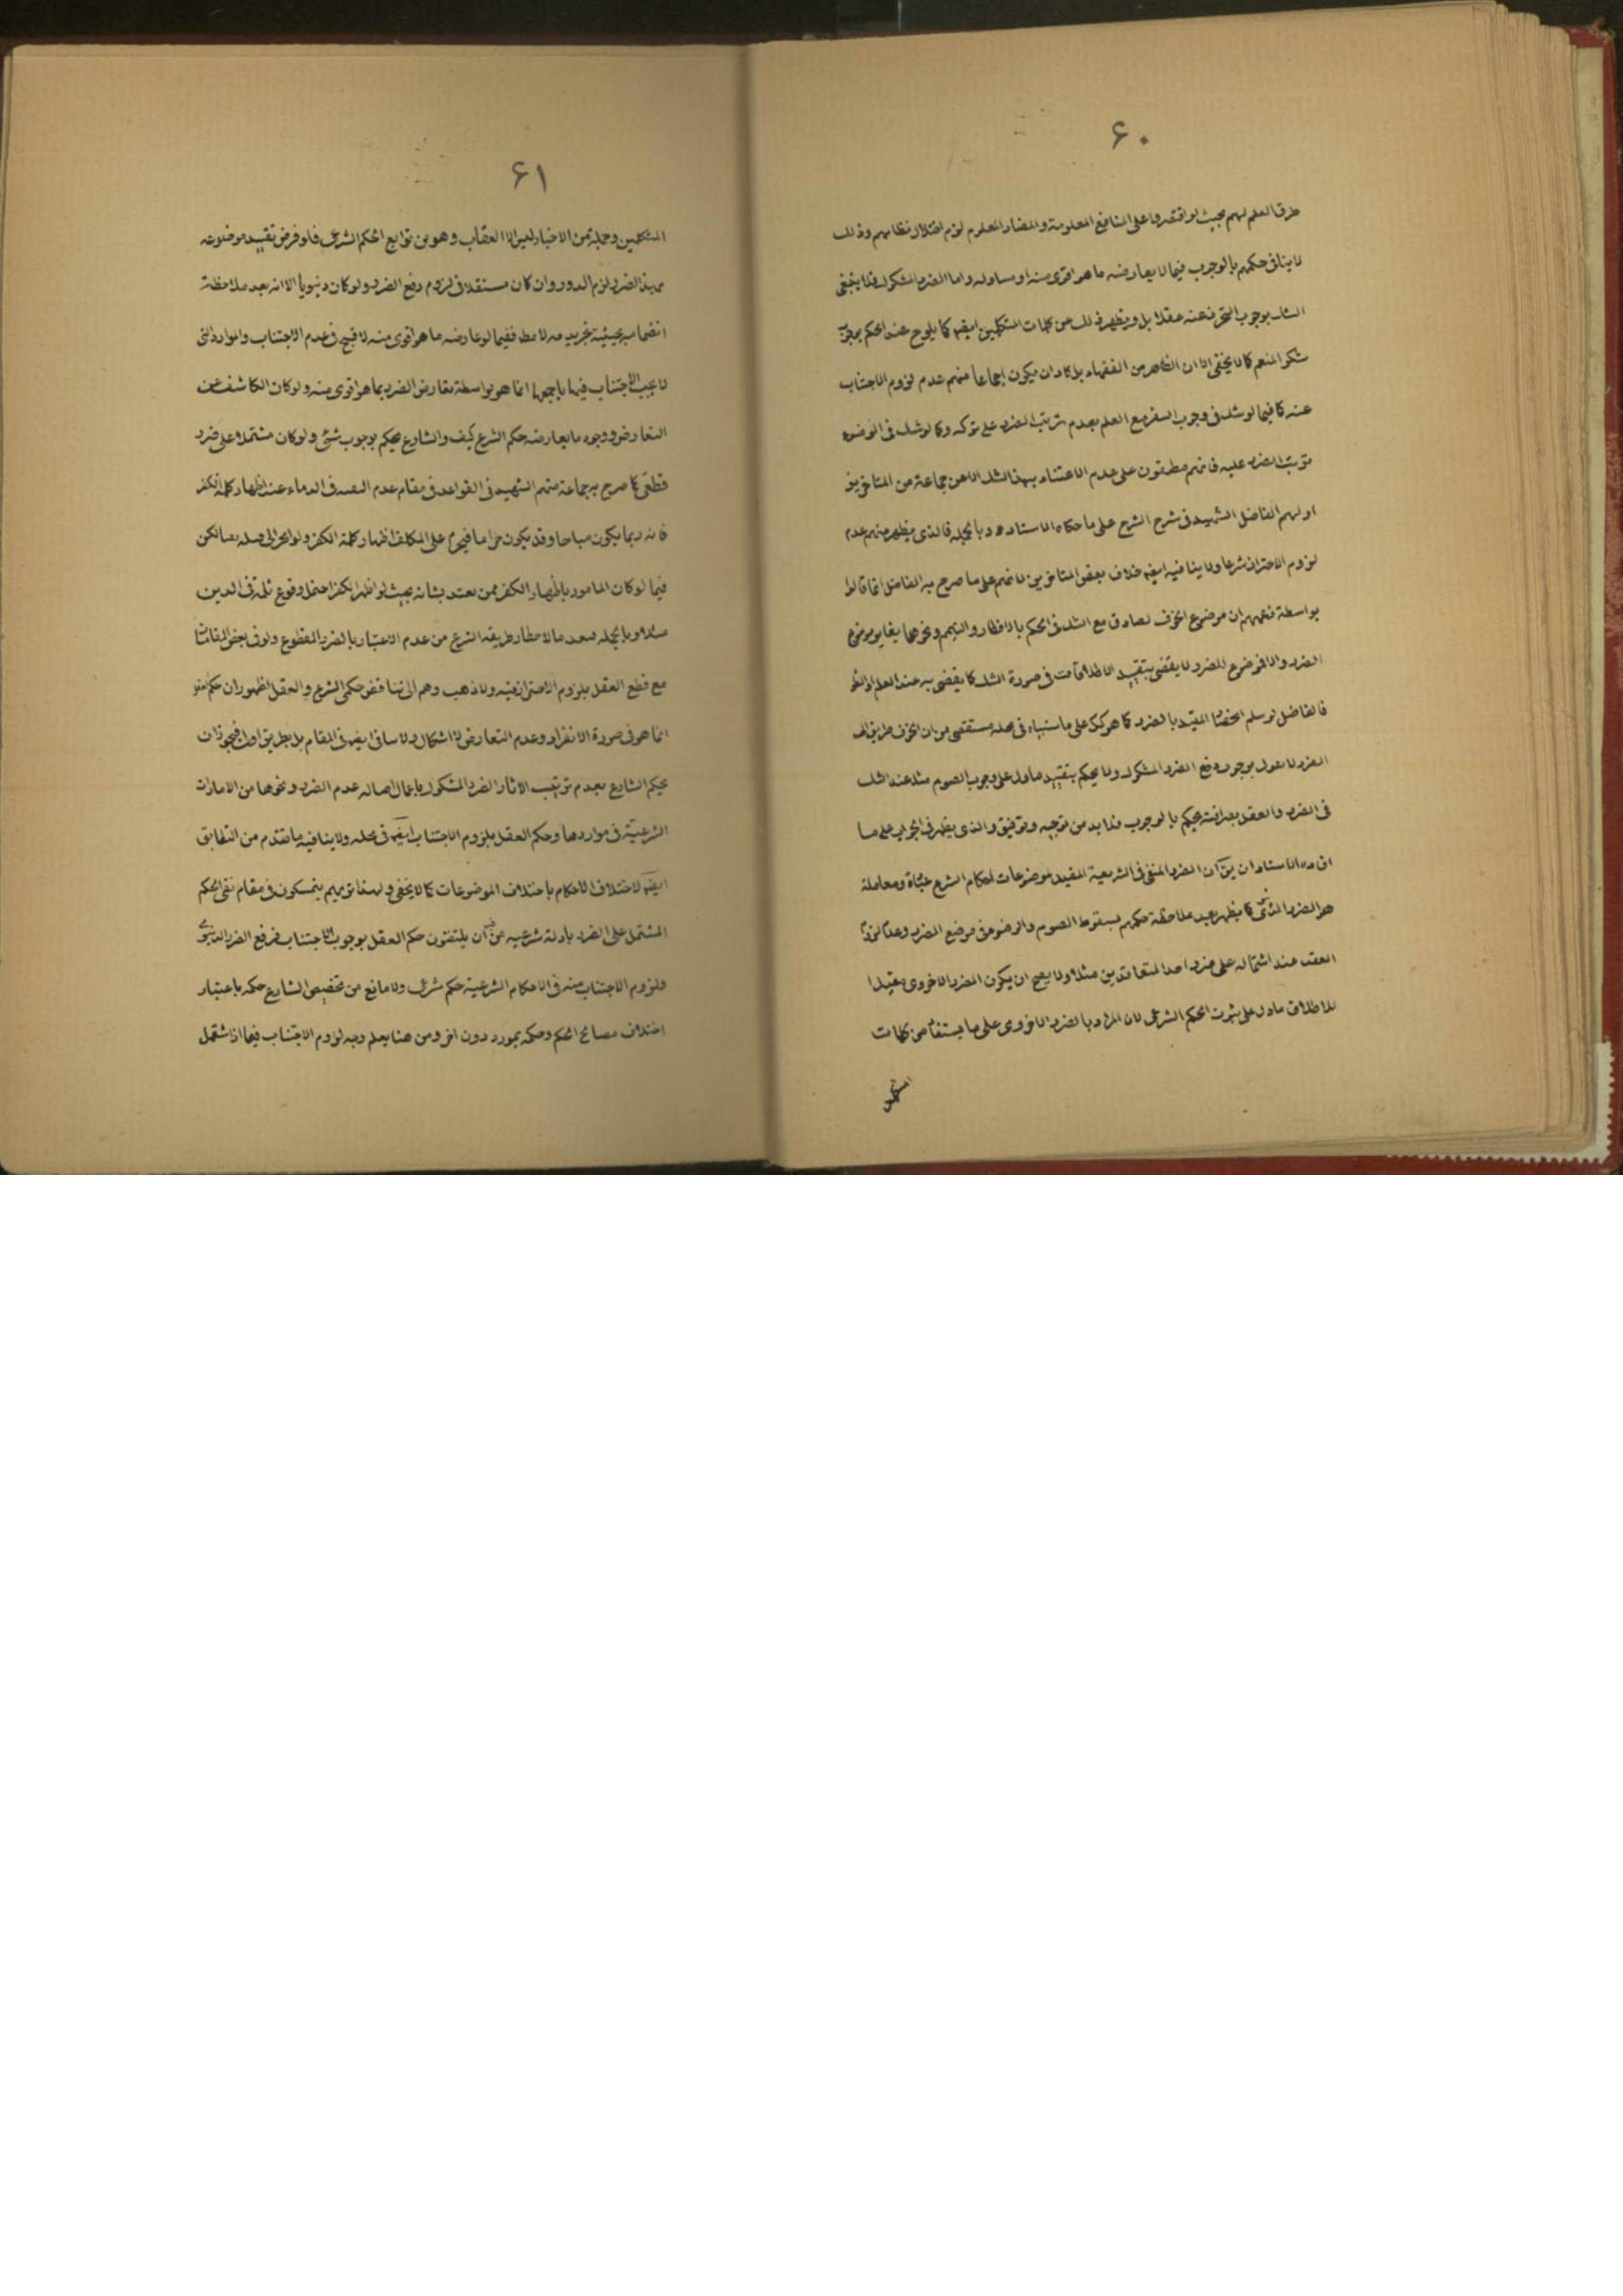 ۶۰
طرق العلم لهم بحيث لو اقتصروا على المنافع المعلومة والمضار المعلوم لزم اختلال نظامهم وذلك
لا ينافي حكمهم بالوجوب فيما لا يعارضه ما هو اقوى منه او مساو له واما الضرر المشكوك فلا ينبغي
الشك بوجوب التحرز عنه عقلا بل ويظهر ذلك من كلمات المتكلمين ايضا كما يلوح عند الحكم بوجوب
شكر المنعم كما لا يخفى الا ان الظاهر من الفقهاء بل كاد ان يكون اجماعا منهم عدم لزوم الاجتناب
عنه كما فيما لو شك في وجوب السفر مع العلم بعدم ترتب الضرر على تركه وكما لو شك في الوضوء
ترتب الضرر عليه فانهم مطبقون على عدم الاعتناء بهذا الشك الا عن جماعة من المتاخرين
اولهم الفاضل الشهيد في شرح الشرح على ما حكاه الاستاد وبالجملة فالذي يظهر منهم عدم
لزوم الاحتراز شرعا ولا ينافيه ايضا خلاف بعض المتاخرين لانهم على ما صرح به الفاضل انما قالوا
بواسطة زعمهم ان موضوع الخوف لصادق مع الشك في الحكم بالافطار والتيمم ونحوهما يغاير موضوع
الضرر والا فموضوع الضرر لا يقضي بتقييد الاطلاقات في صورة الشك كما يقضي به عند العلم او الظن
فالفاضل لو سلم المقيد بالضرر كما هو كك على ما ستنبأه في محله مستقصى من ان الخوف طريق الى
الضرر لا يقول بوجوب دفع الضرر المشكوك ولا يحكم بتقييد ما دل على وجوب الصوم مثلا عند الشك
في الضرر والعقل بصرافته يحكم بالوجوب فلا بد من توجيه وتوفيق والذي يظهر في الجواب على ما
افاده الاستاد ان يق ان الضرر المنفي في الشريعة المقيد لموضوعات احكام الشرع عبادة ومعاملة
هو الضرر كما يظهر بعد ملاحظة حكمهم بسقوط الصوم والوضوء في موضع الضرر وعدم لزوم
العقد عند اشتماله على ضرر احد المتعاقدين مثلا ولا يصح ان يكون الضرر الاخروي مقيدا
للاطلاق ما دل على ثبوت الحكم الشرعي لان المراد بالضرر الاخروي على ما يستفاد من كلمات
المتكلمين
۶۱
المتكلمين وجملة من الاخبار ليس الا العقاب وهو من توابع الحكم الشرعي فلو فرض تقييد موضوعه
بهذا الضرر لزم الدور وان كان مستقلا في لزوم دفع الضرر ولو كان دنيويا الا انه بعد ملاحظة
ففيما لو عارضه ما هو اقوى منه لا قبح في عدم الاجتناب والموارد التي
لا يجب الاجتناب فيها باجمعها انما هو بواسطة تعارض الضرر بما هو اقوى منه ولو كان الكاشف عن
التعارض ووجود ما يعارضه حكم الشرع كيف والشارع يحكم بوجوب شئ ولو كان مشتملا على ضرر
قطعي كما صرح به جماعة منهم الشهيد في القواعد في مقام عدم التقية في الدماء عند اظهار كلمة الكفر
فانه ربما يكون مباحا وقد يكون حراما فيحرم على المكلف اظهار كلمة الكفر ولو انجر الى قتله
فيما لو كان المامور باظهار الكفر ممن يعتد بشانه بحيث لو اظهر الكفر احتمل وقوع ثلمة في الدين
مثلا وبالجملة فبعد ما لاحظنا طريقة الشرع من عدم الاعتبار بالضرر المقطوع ولو في بعض المقامات
مع قطع العقل بلزوم الاحتراز فيه ولا ذهب وهم الى تناقض حكمي الشرع والعقل لظهور ان حكم العقل
انما هو في صورة الانفراد وعدم التعارض لا اشكال ولا ينافي ايضا في المقام بل بطريق اولى فيجوز ان
يحكم الشارع بعدم ترتيب الاثار الضرر المشكوك باعمال اصالة عدم الضرر ونحوها من الامارات
الشرعية في مواردها وحكم العقل بلزوم الاجتناب ايضا في محله ولا ينافيه ما تقدم من التطابق
ايضا لاختلاف الاحكام باختلاف الموضوعات كما لا يخفى ولهذا تريهم يتمسكون في مقام نفي الحكم
المشتمل على الضرر بادلة شرعية من غير ان يلتفتون حكم العقل بوجوب الاجتناب فرفع الضرر الدنيوي
ولزوم الاجتناب منه في الاحكام الشرعية حكم شرعي ولا مانع من تخصيص الشارع حكمه باعتبار
اختلاف مصالح الحكم وحكمه بمورد دون اخر ومن هنا يعلم وجه لزوم الاجتناب فيما اذا اشتمل